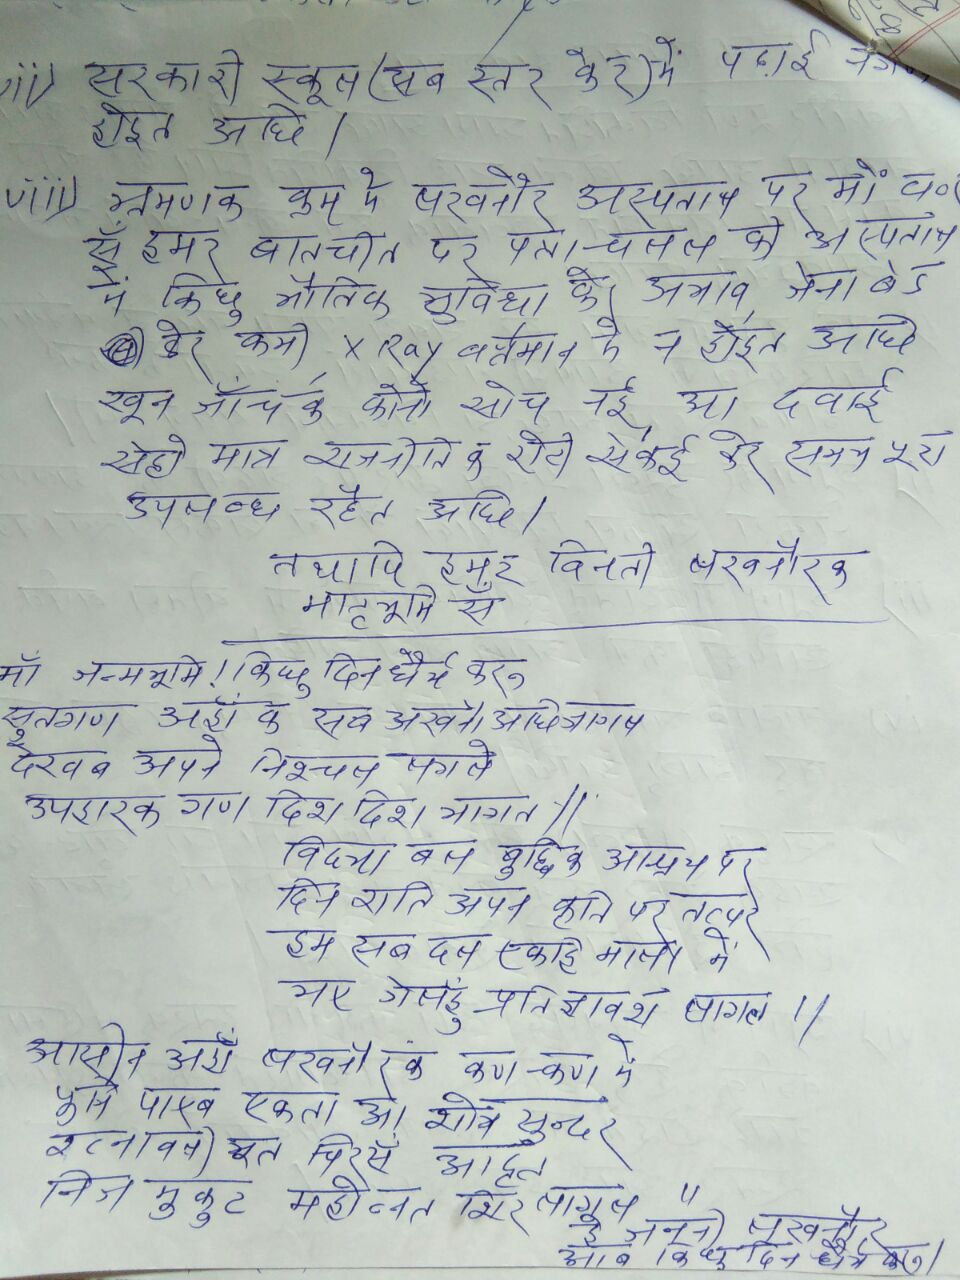 vii) सरकारी स्कूल (सब स्तर केर) में पढ़ाई
होइत अछि।
viii) भ्रमणक क्रम में लखनौर अस्पताल पर
सँ हमर बातचीत पर पता चलल की अस्पताल
में किछु भौतिक सुविधा के अभाव जेना बेड
ढेर कमी X Ray वर्तमान में न होइत अछि
खून जाँच के कोनो सोच नई आ दवाई
सेहो मात्र राजनीति के रोटी सेकई केर समय पर
उपलब्ध रहैत अछि।
तथापि हमर विनती लखनौरक
मातृभूमि सँ
माँ जन्मभूमि! किछु दिन धैर्य करू
सुतगण अहाँ के सब अखनो अछि जागल
देखब अपने निश्चल
उपहारक गण दिश दिश भागत॥
विद्या बल बुद्धिक आश्रय पर
दिन राति अपन कृति पर तत्पर
हम सब दल एकहि माला में
भए गेलहुं प्रतिज्ञावश लागल॥
आसीन अहाँ लखनौर के कण-कण में
पाएब एकता आ सुन्दर
रत्नावली
निज मुकुट महोन्नत शिर लागल॥
हे जननी लखनौर
आब किछु दिन धैर्य करू।